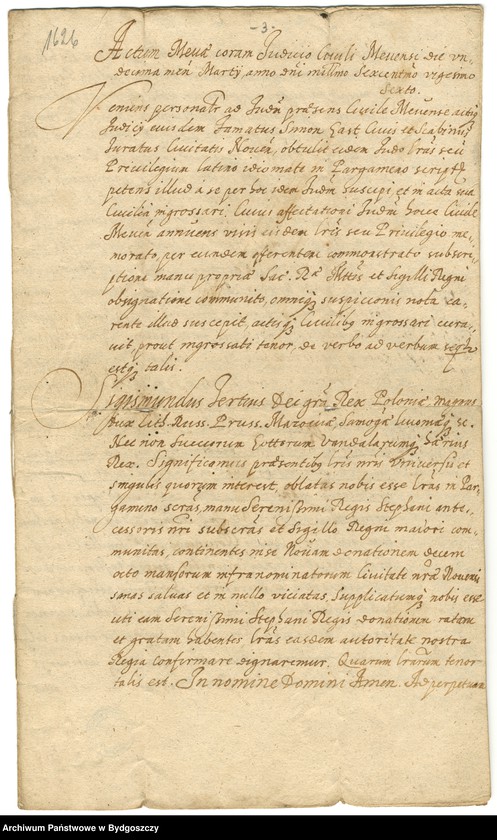 -3-
1626
Actum Mevæ coram Judicio Civili Mevensi die un=
decima men̄ Martÿ anno dni millmo Sexcentmo vigesmo
Sexto.
Veniens personalr̄ ad Judm̄ præsens Civile Mevense actiq̄
Judicÿ eiusdem Famatus Simon Gast Civis et Scabinus
Juratus Civitatis Novēn, obtulit eidem Judo lr̄as seu
Privilegium latino idiomate in Pargameno scriptū
petens illud a se per hoc idem Judm̄ suscipi et in acta sua
Civilia ingrossari. Cuius affectationi Judm̄ hocce Civile
Mevēn annuens visis eisdem lr̄is seu Privilegio me=
morato, per eundem offerentem commonstrato subscri=
ptione manu propriæ Sac. Ræ Mttis et Sigilli Regni
obsignatione communito, omniq̄ suspicionis nota ca=
rente illud suscepit, actisq̄ Civilibq̄ ingrossari cura=
vit, prout ingrossati tenor, de verbo ad verbum seqr̄
estq̄ talis.
Sigismundus Tertius Dei grā Rex Poloniæ, magnus
Dux Lith. Russ. Pruss. Mazoviæ, Samogæ Livoniæq̄ ec.
Nec non Suecorum Gottorum Vandalorumq̄ hærius
Rex. Significamus præsentibq̄ lr̄is nr̄is Universis et
singulis quorum interest, oblatas nobis esse lr̄as in Par=
gameno scr̄as, manu Serenissimi Regis Stephani ante=
cessoris nr̄i subscr̄as et Sigillo Regni maiori com=
munitas, continentes in se Novam donationem decem
octo mansorum infranominatorum Civitate nr̄a Novensi
sanas salvas et in nullo viciatas, Supplicatumq̄ nobis esse
uti eam Serenissimi Stephani Regis donationem ratam
et gratam habentes lr̄as easdem autoritate nostra
Regia confirmare dignaremur. Quarum lr̄arum tenor
talis est. In nomine Domini Amen. Ad perpetuam
Archiwum Państwowe w Bydgoszczy